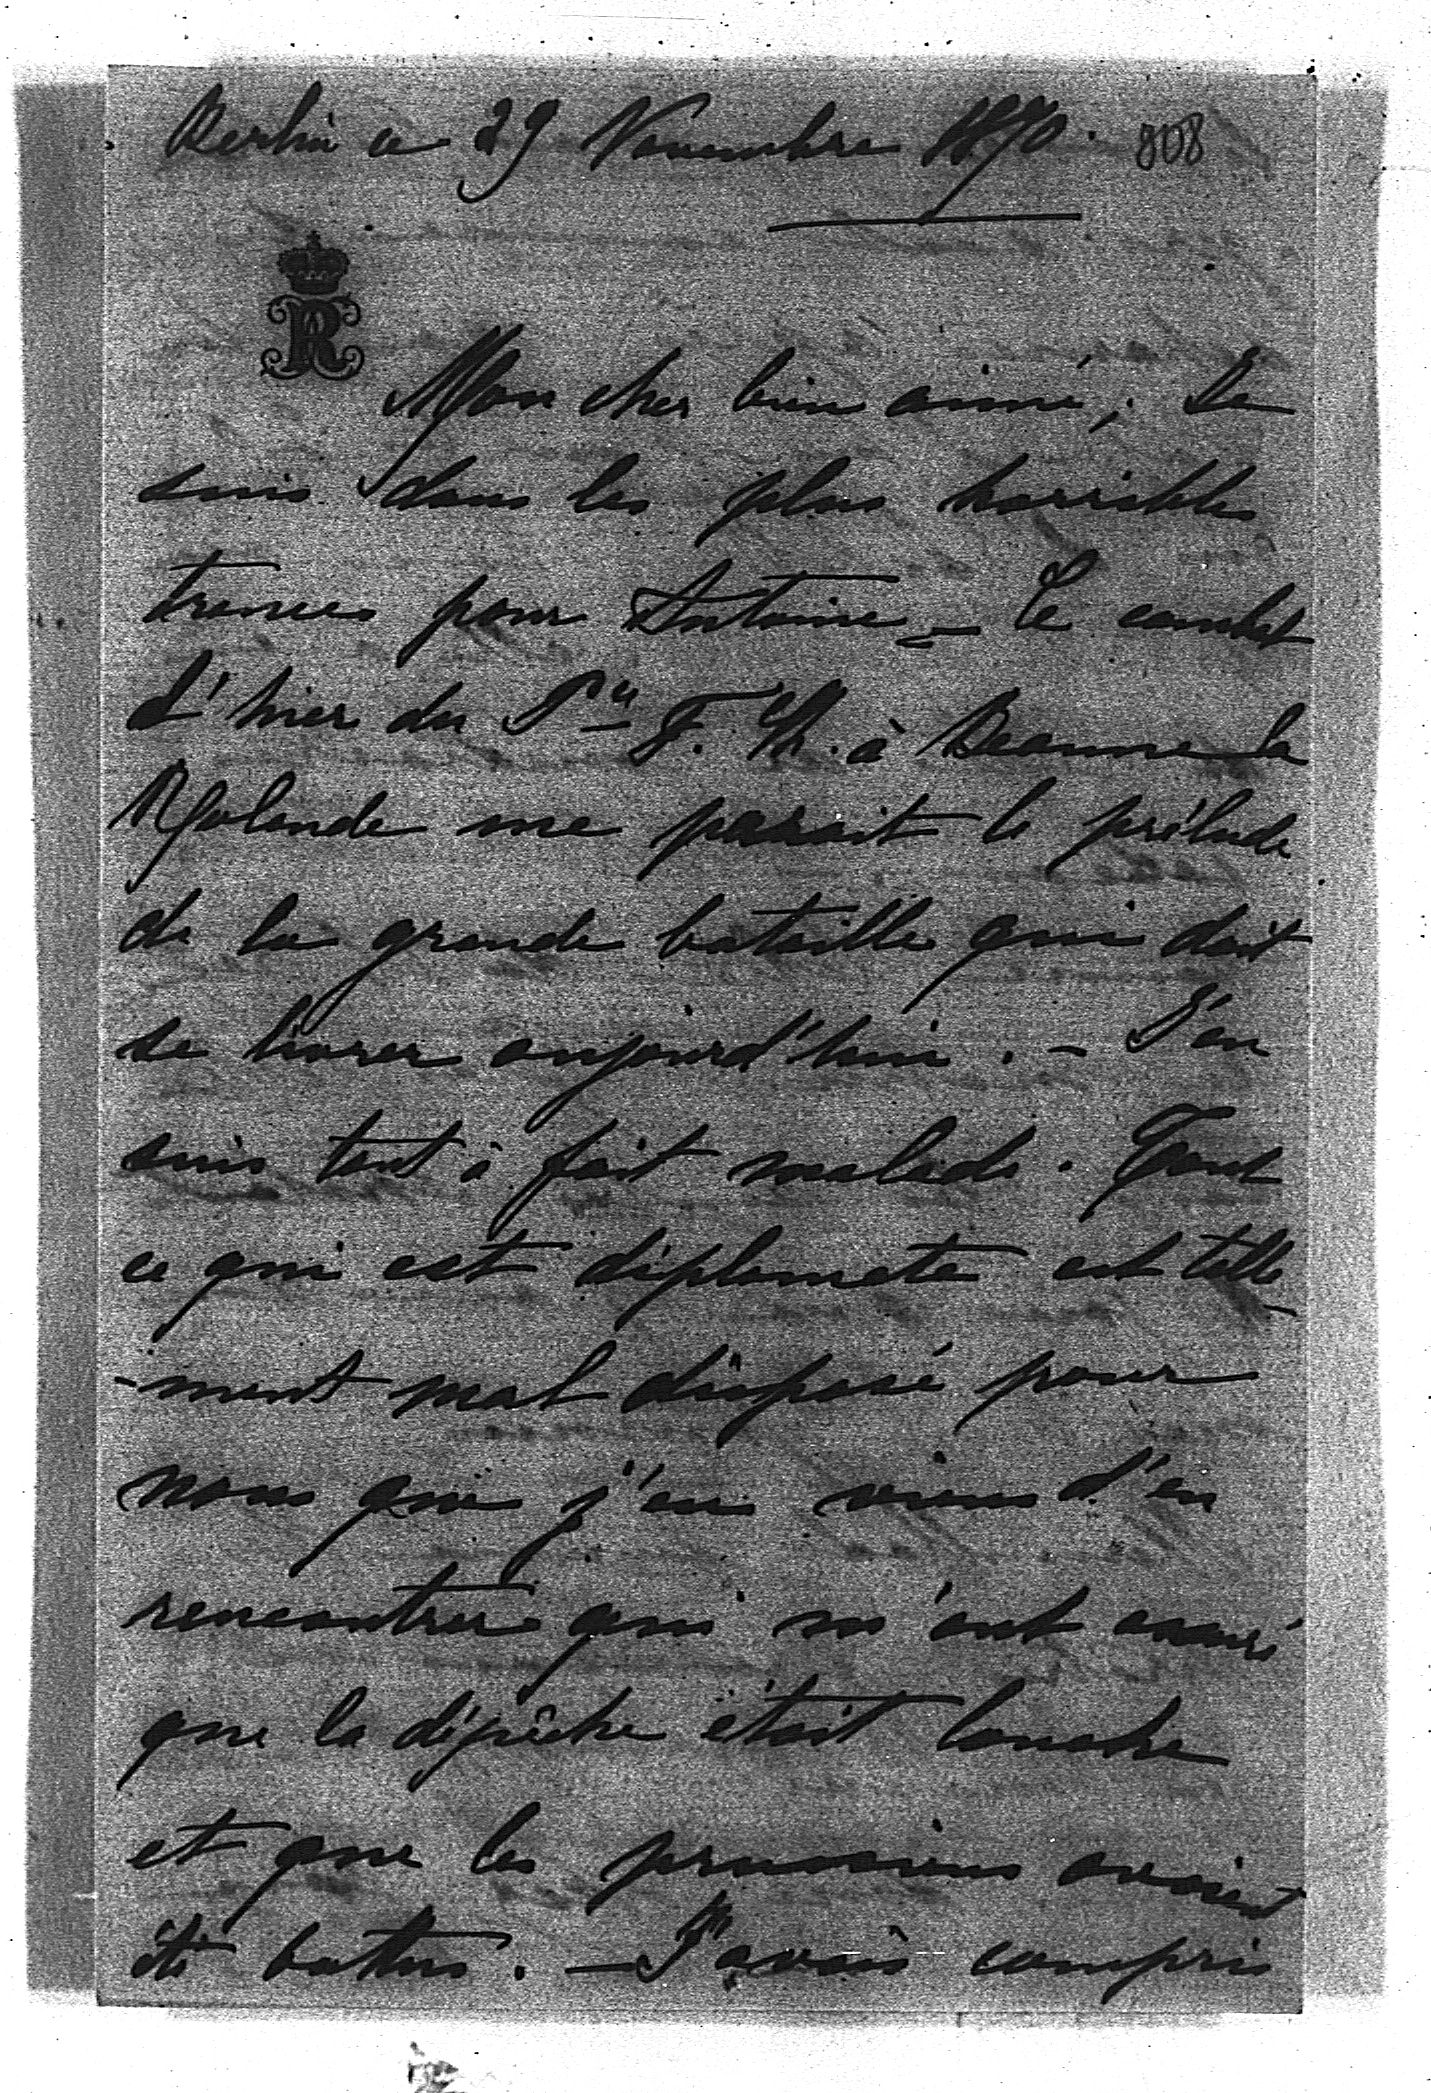 Berlin ce 29 Novembre 1870. 808
R
Mon cher bien aimé, Je
suis dans les plus horribles
trances pour Antoine – Le combat
d'hier du Pce F. Ch. à Beaune la
Rolande me parait le prélude
de la grande bataille qui doit
se livrer aujourd'hui. – J'en
suis tout à fait malade. Tout
ce qui est diplomate est telle-
-ment mal disposé pour
nous que j'en viens d'en
rencontrer qui m'ont assuré
que la dépêche était louche
et que les prussiens avaient
été battus. – J'avais compris